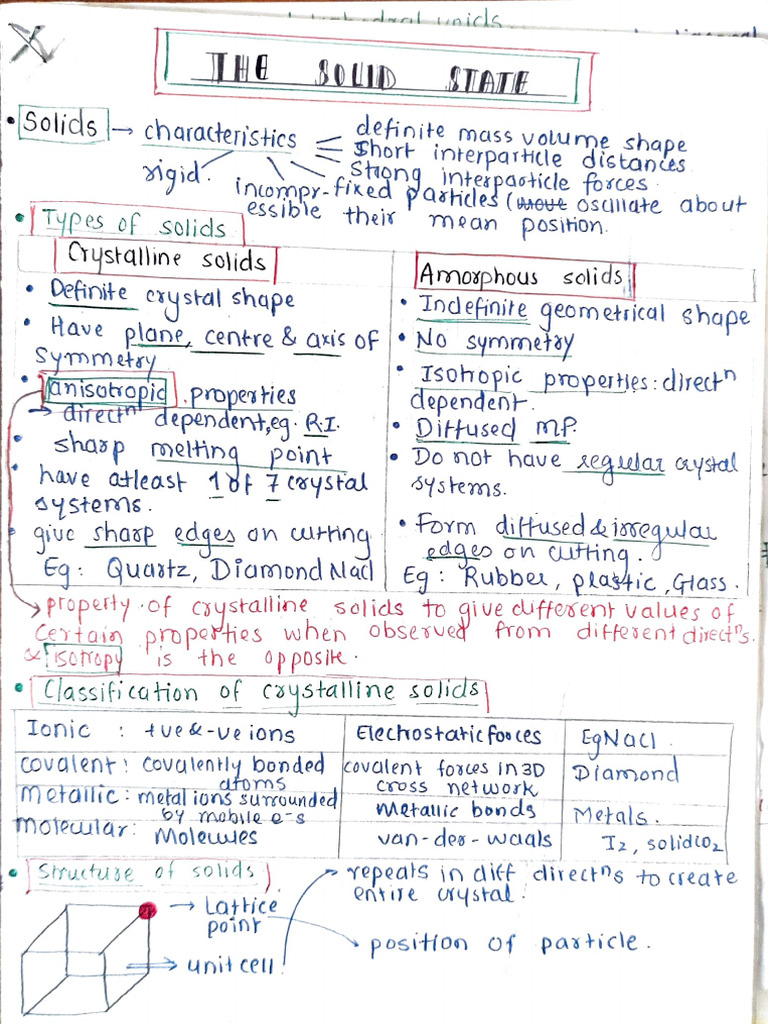 THE SOLID STATE
• Solids → characteristics
definite mass volume shape
Short interparticle distances
Strong interparticle forces.
rigid.
incompressible
fixed particles (move oscillate about
their mean position.
• Types of solids
Crystalline solids
• Definite crystal shape
• Have plane, centre & axis of
symmetry
• anisotropic properties
→ directⁿ dependent, eg. R.I.
• sharp melting point
• have atleast 1 of 7 crystal
systems.
• give sharp edges on cutting
Eg: Quartz, Diamond Nacl
Amorphous solids
• Indefinite geometrical shape
• No symmetry
• Isotropic properties: directⁿ
dependent.
• Diffused MP.
• Do not have regular crystal
systems.
• Form diffused & irregular
edges on cutting.
Eg: Rubber, plastic, Glass.
→ property of crystalline solids to give different values of
certain properties when observed from different directⁿs.
& isotropy is the opposite.
• Classification of crystalline solids
Ionic : +ve & -ve ions Electrostatic forces Eg NaCl.
covalent: covalently bonded atoms covalent forces in 3D cross network Diamond
metallic: metal ions surrounded by mobile e-s Metallic bonds Metals.
molecular: Molecules van-der-waals I₂, solid CO₂
• Structure of solids
→ Lattice
point
→ unit cell
→ repeats in diff directⁿs to create
entire crystal.
→ position of particle.